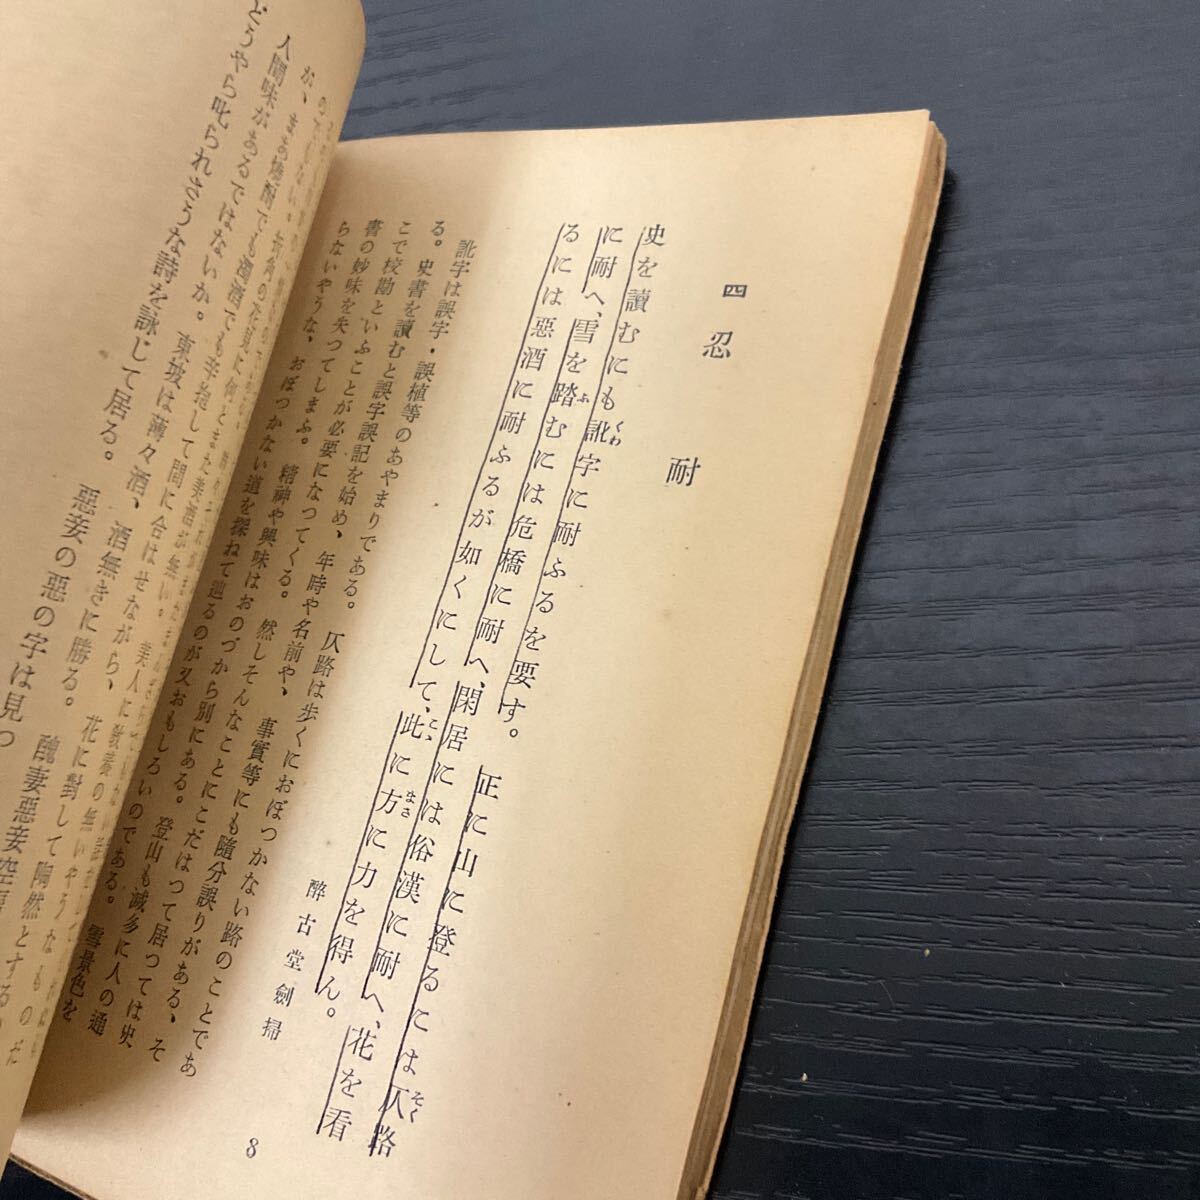 四 忍耐
史を讀むにも訛字に耐ふるを要す。正に山に登るには仄路
に耐へ、雪を踏むには危橋に耐へ、閑居には俗漢に耐へ、花を看
るには惡酒に耐ふるが如くにして、此に方に力を得ん。
醉古堂劍掃
訛字は誤字・誤植等のあやまりである。仄路は歩くにおぼつかない路のことであ
る。史書を讀むと誤字誤記を始め、年時や名前や、事實等にも隨分誤りがある、そ
こで校勘といふことが必要になつてくる。然しそんなことにこだはつて居つては史
書の妙味を失つてしまふ。精神や興味はおのづから別にある。登山も滅多に人の通
らないやうな、おぼつかない道を探ねて辿るのが又おもしろいのである。雪景色を
8
か、まあ燒酎でも濁酒でも辛抱して間に合はせながら、花に對して陶然とする
人間味があるではないか。東坡は薄々酒、酒無きに勝る。醜妻惡妾空
どうやら叱られさうな詩を詠じて居る。惡妾の惡の字は見つ